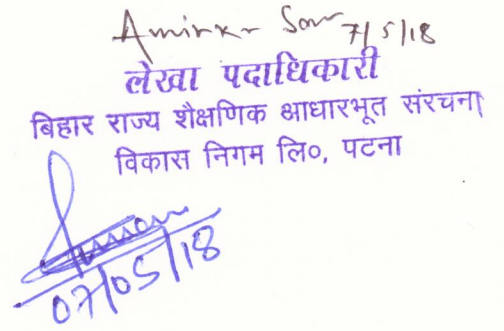 7/5/18
लेखा पदाधिकारी
बिहार राज्य शैक्षणिक आधारभूत संरचना
विकास निगम लि०, पटना
07/05/18